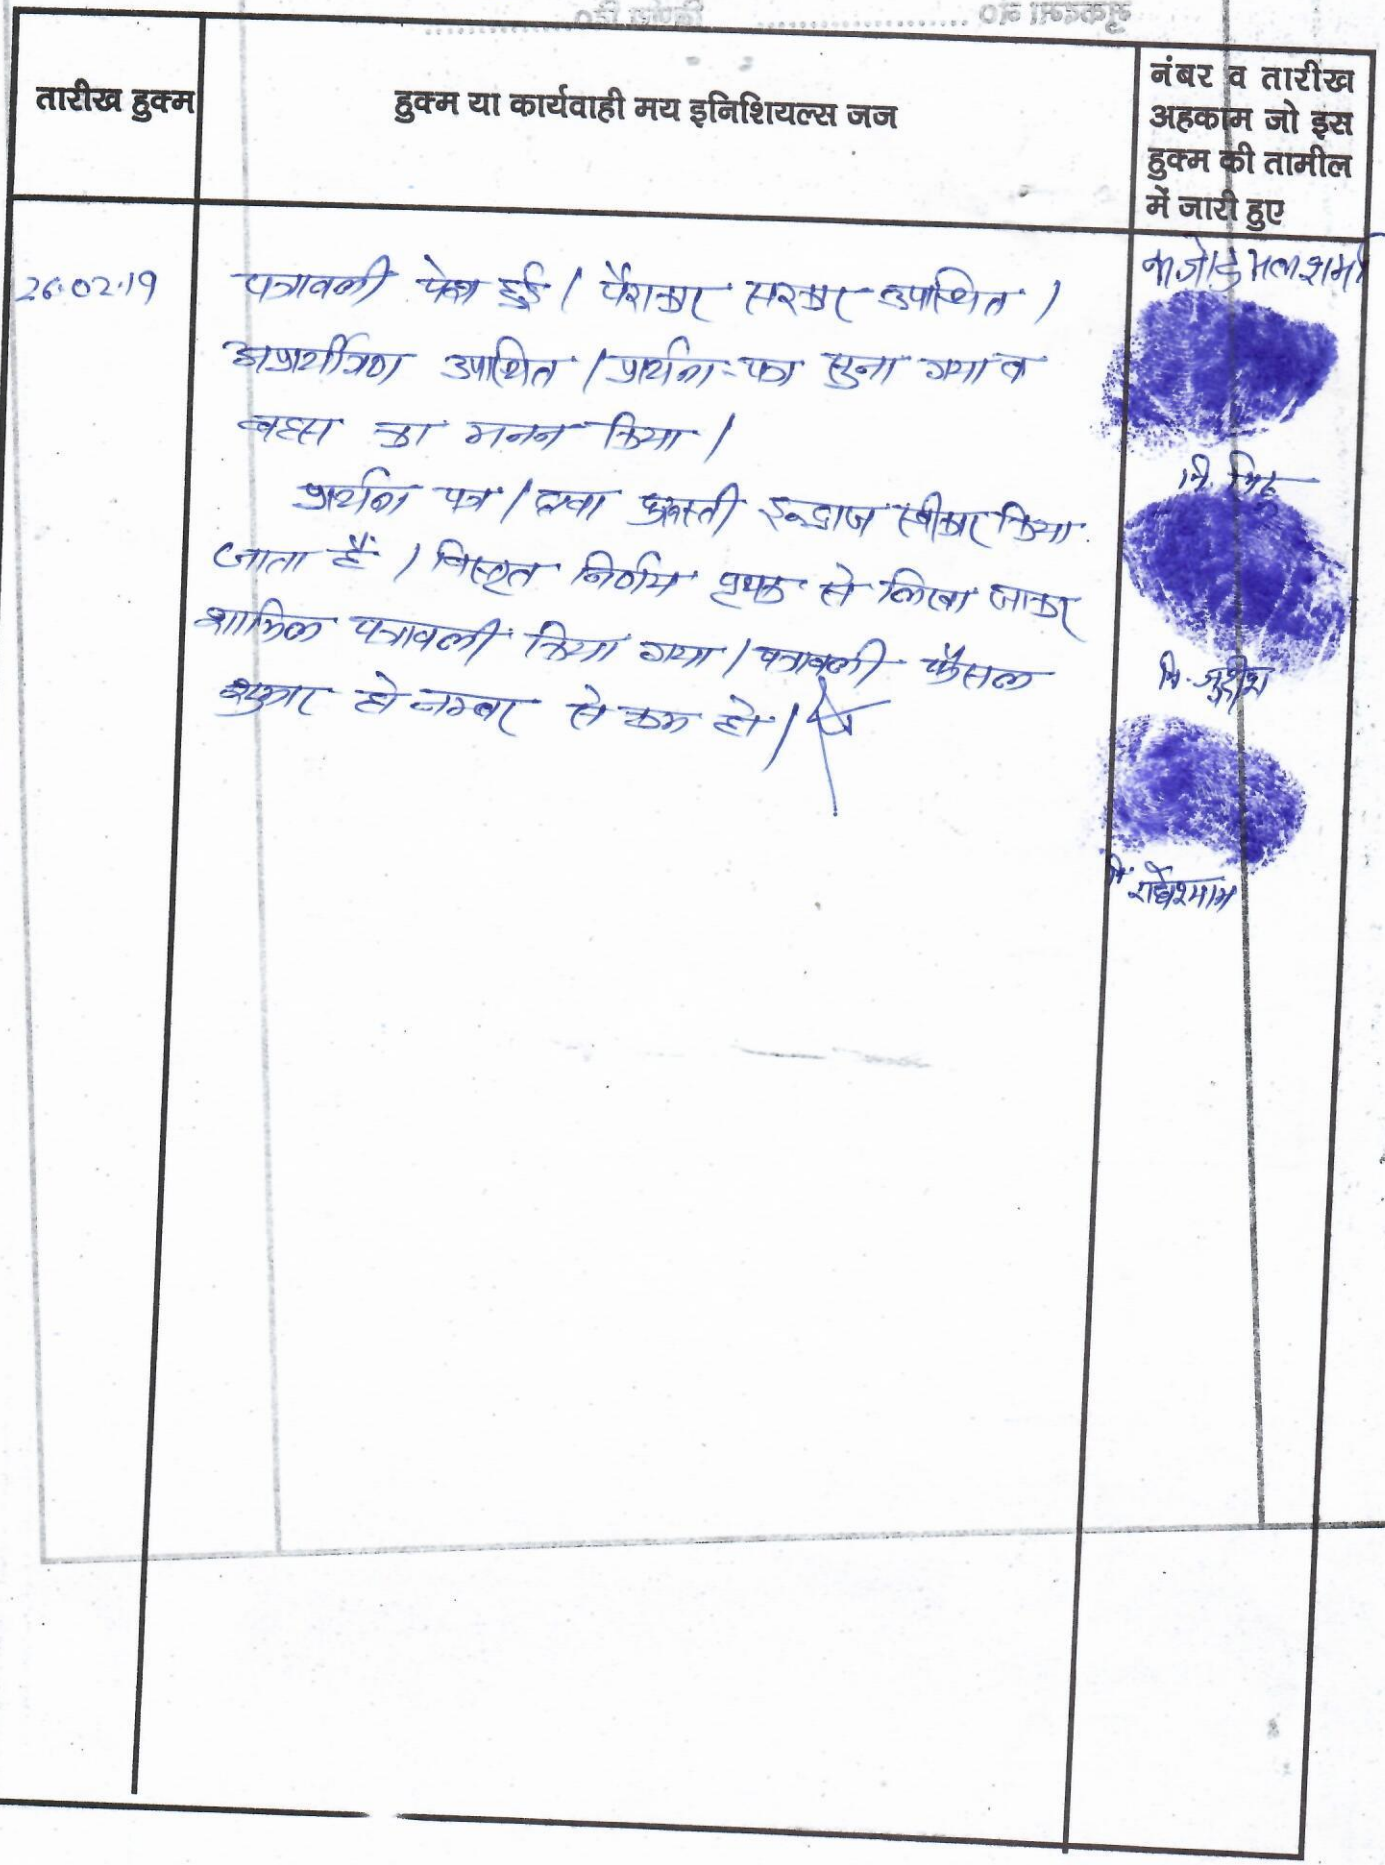 तारीख हुक्म
हुक्म या कार्यवाही मय इनिशियल्स जज
नंबर व तारीख
अहकाम जो इस
हुक्म की तामील
में जारी हुए
26.02.19
पत्रावली पेश हुई। पैरोकार सरकार उपस्थित।
अप्रार्थीगण उपस्थित। प्रार्थना-पत्र सुना गया व
बहस का मनन किया।
प्रार्थना पत्र / दावा इन्द्राज स्वीकार किया
जाता है। विस्तृत निर्णय पृथक से लिखा जाकर
शामिल पत्रावली किया गया। पत्रावली फैसल
शुमार हो नम्बर से कम हो।
शर्मा
नि.
नि.
नि. राधेश्याम